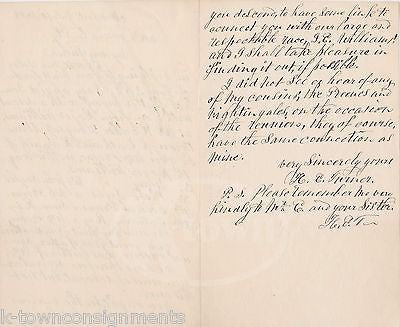 you descend, to have some link to
connect you with our large and
respectable race, J. C. Williams!
and I shall take pleasure in
finding it out if possible.
I did not see or hear of any
of my cousins, the Reeves and
Nightingales, on the occasion
of the reunion, they of course,
have the same connection as
mine.
very Sincerely yours
H. E. Turner.
P. S. Please remember me very
kindly to Mr. C. and your Sister.
H. E. T.
k-townconsignments